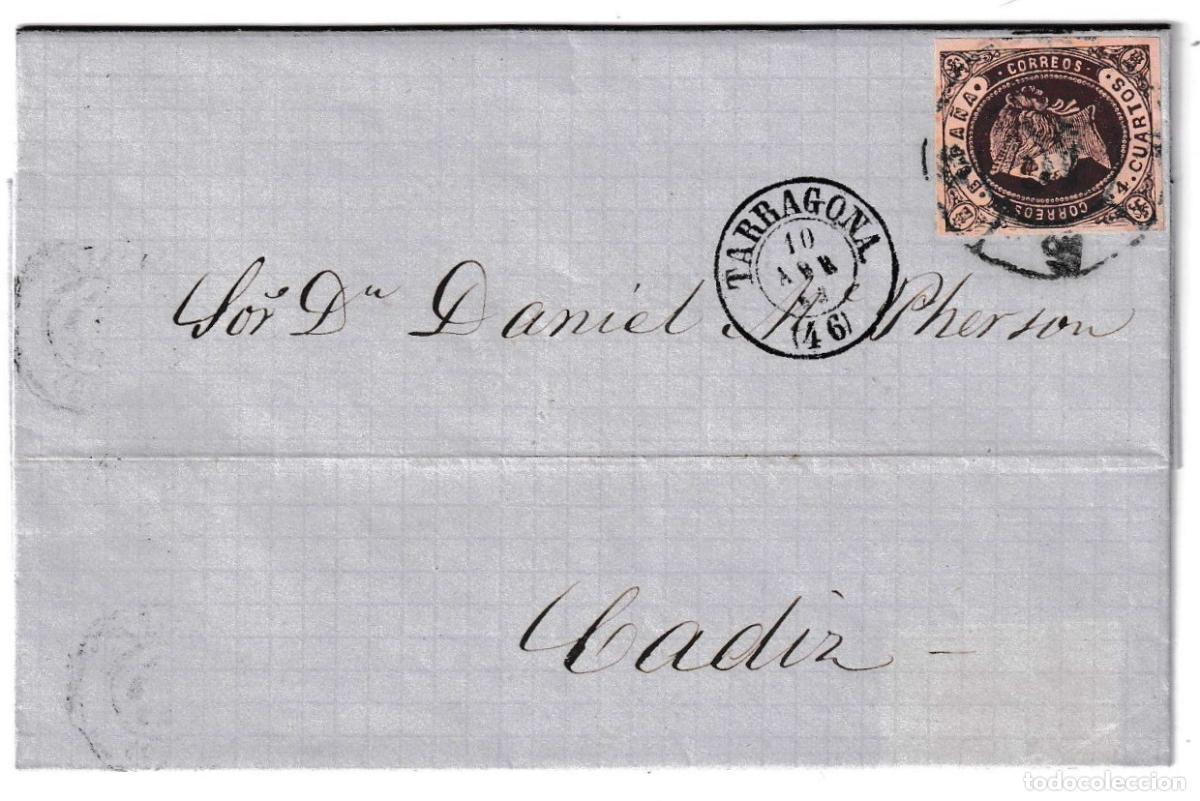 · CORREOS ·
· ESPAÑA ·
4 · CUARTOS ·
CORREOS
TARRAGONA
10
ABR
(46)
Sor Dn Daniel Mc Pherson
Cadiz
todocoleccion